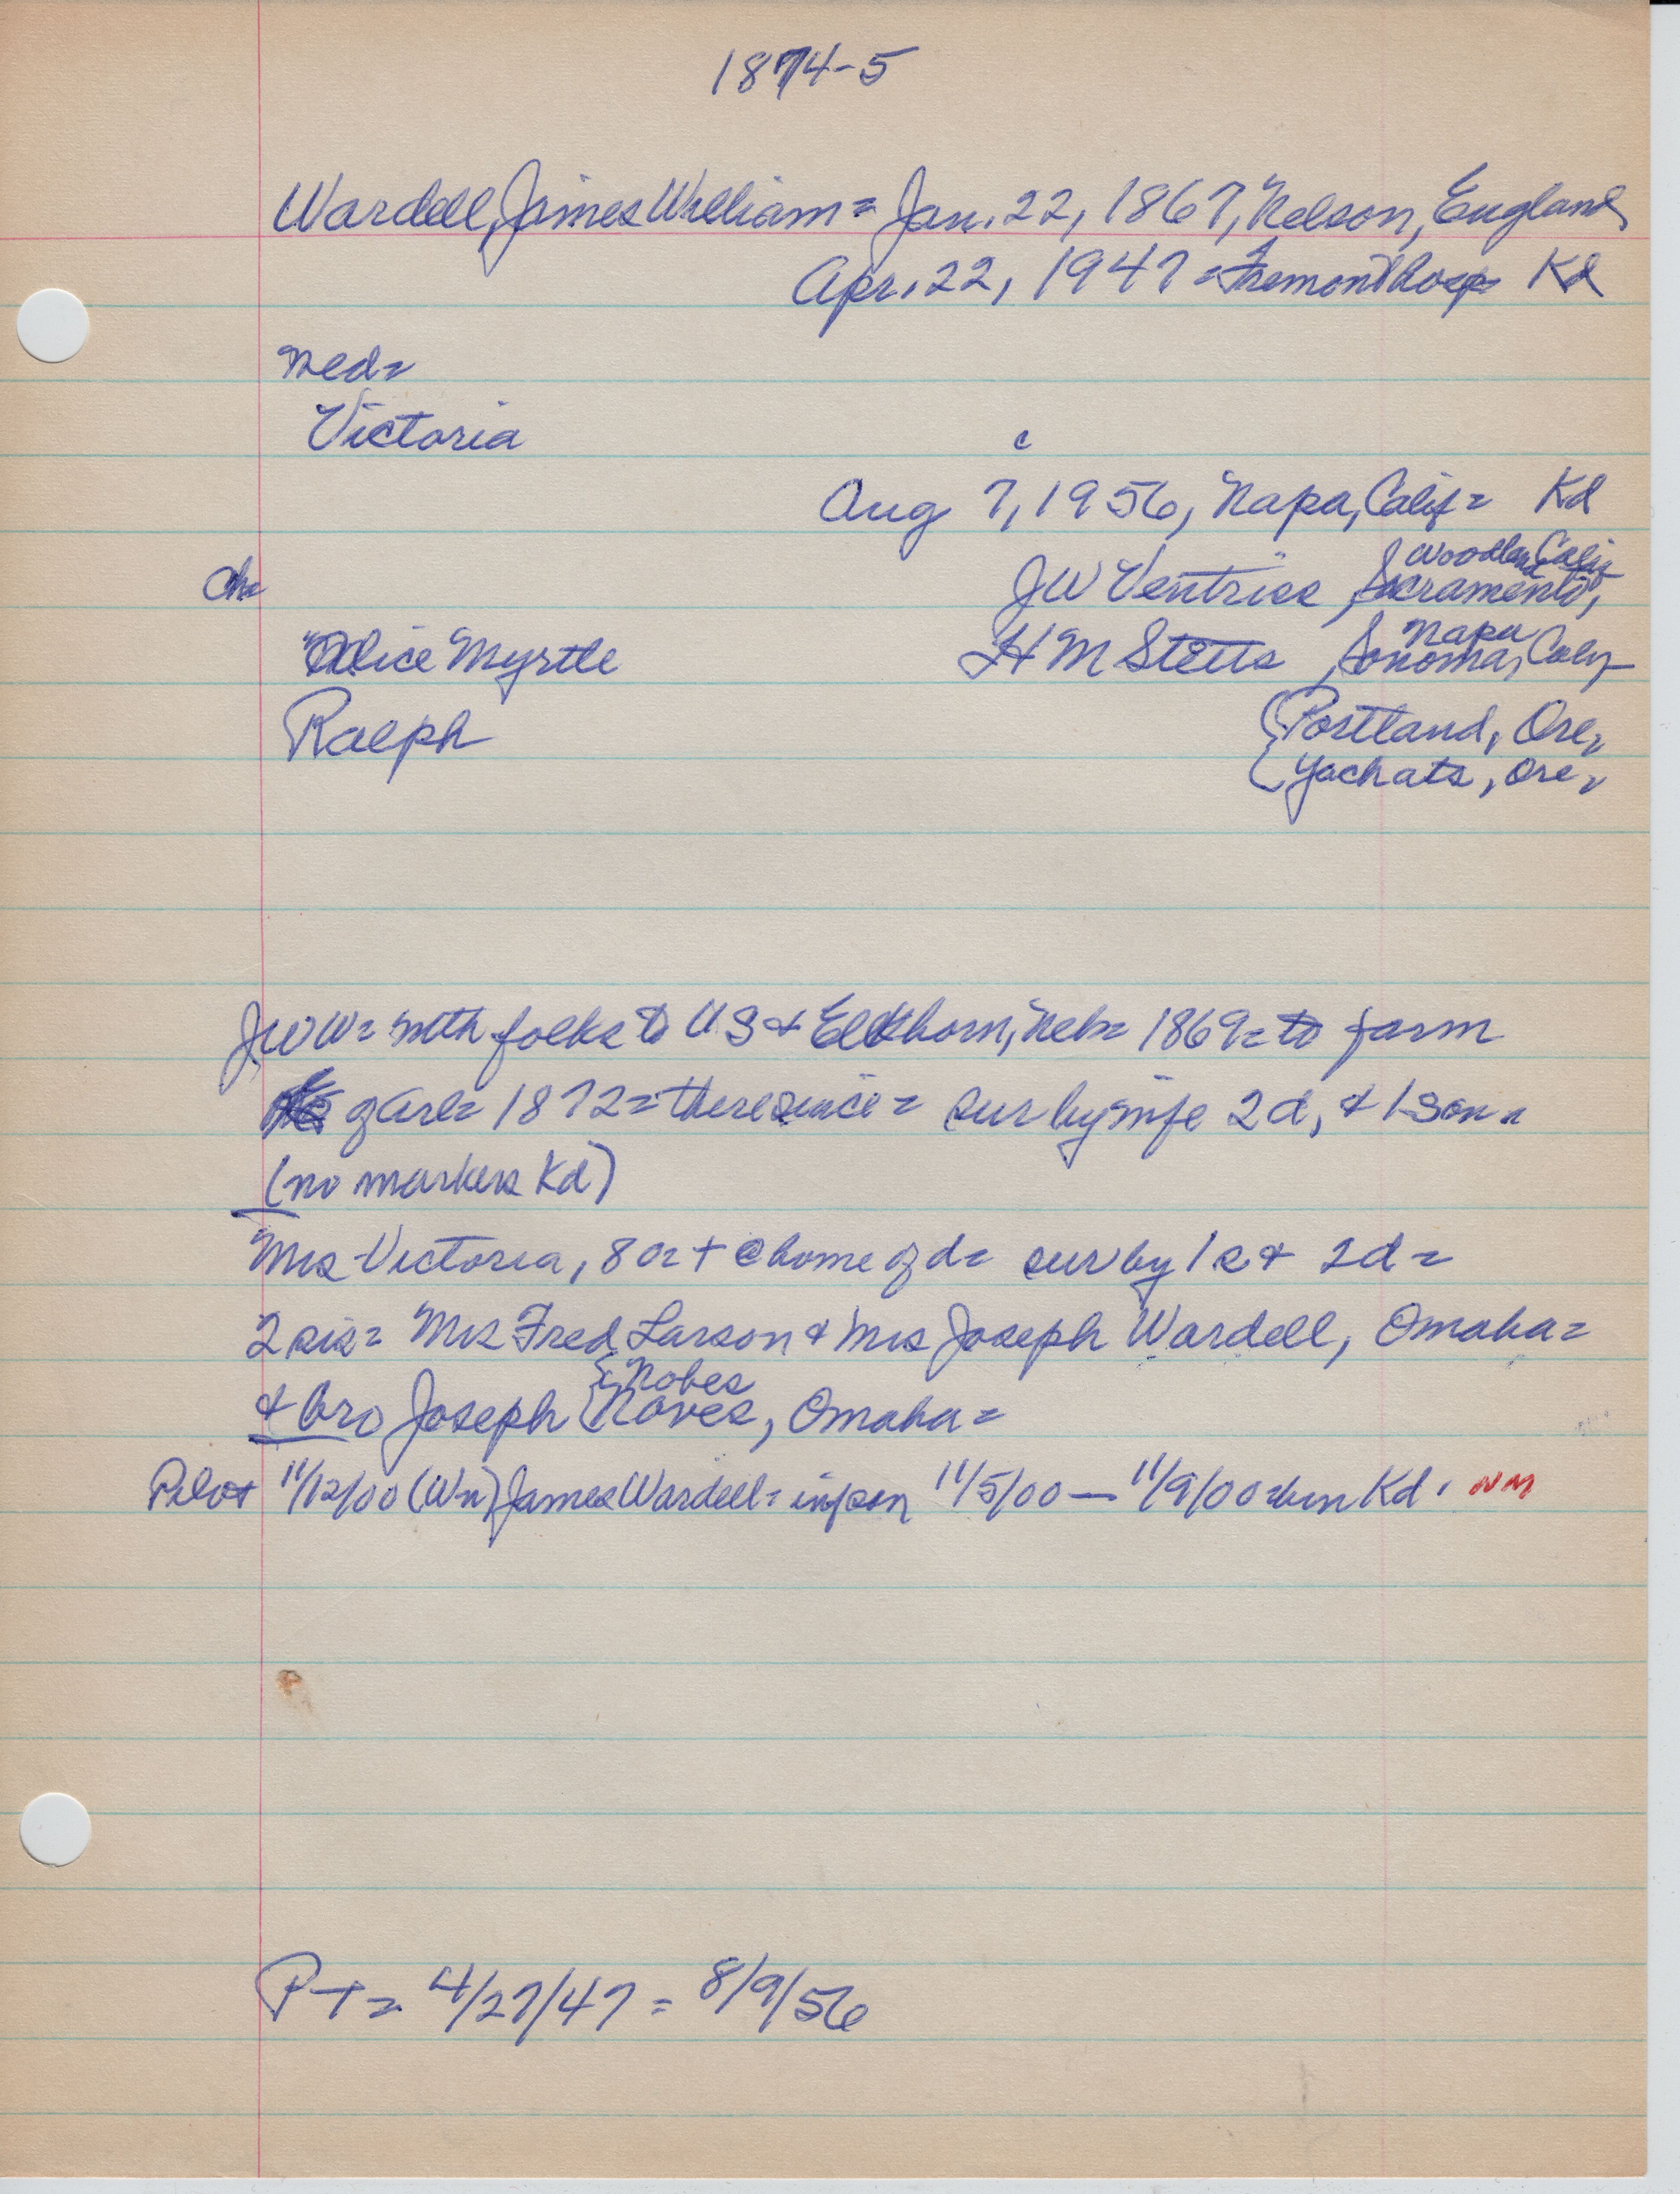 1874-5
Wardell, James William = Jan. 22, 1867, Nelson, England
Apr. 22, 1947 = Fremont hosp = Kd
Med=
Victoria
c
Aug 7, 1956, Napa, Calif = Kd
Woodland Calif
Ch= JW Ventriss, Sacramento,
Napa
Alice Myrtle HM Stetts, Sonoma, Calif
Ralph {Portland, Ore,
{Yachats, Ore,
JWW = with folks to US & Elkhorn, Neb = 1869 = to farm
of Arl = 1872 = there since = sur by wife 2d, & 1 son =
(no markers Kd)
Mrs Victoria, 80 = + @ home of d = sur by 1 s & 2d =
2 sis = Mrs Fred Larson & Mrs Joseph Wardell, Omaha =
{Nobes
& bro Joseph {Noves, Omaha =
Pilot 11/12/00 (Wn) James Wardell = inf son 11/5/00 — 11/9/00 = bur Kd. NM
PT = 4/27/47 = 8/9/56